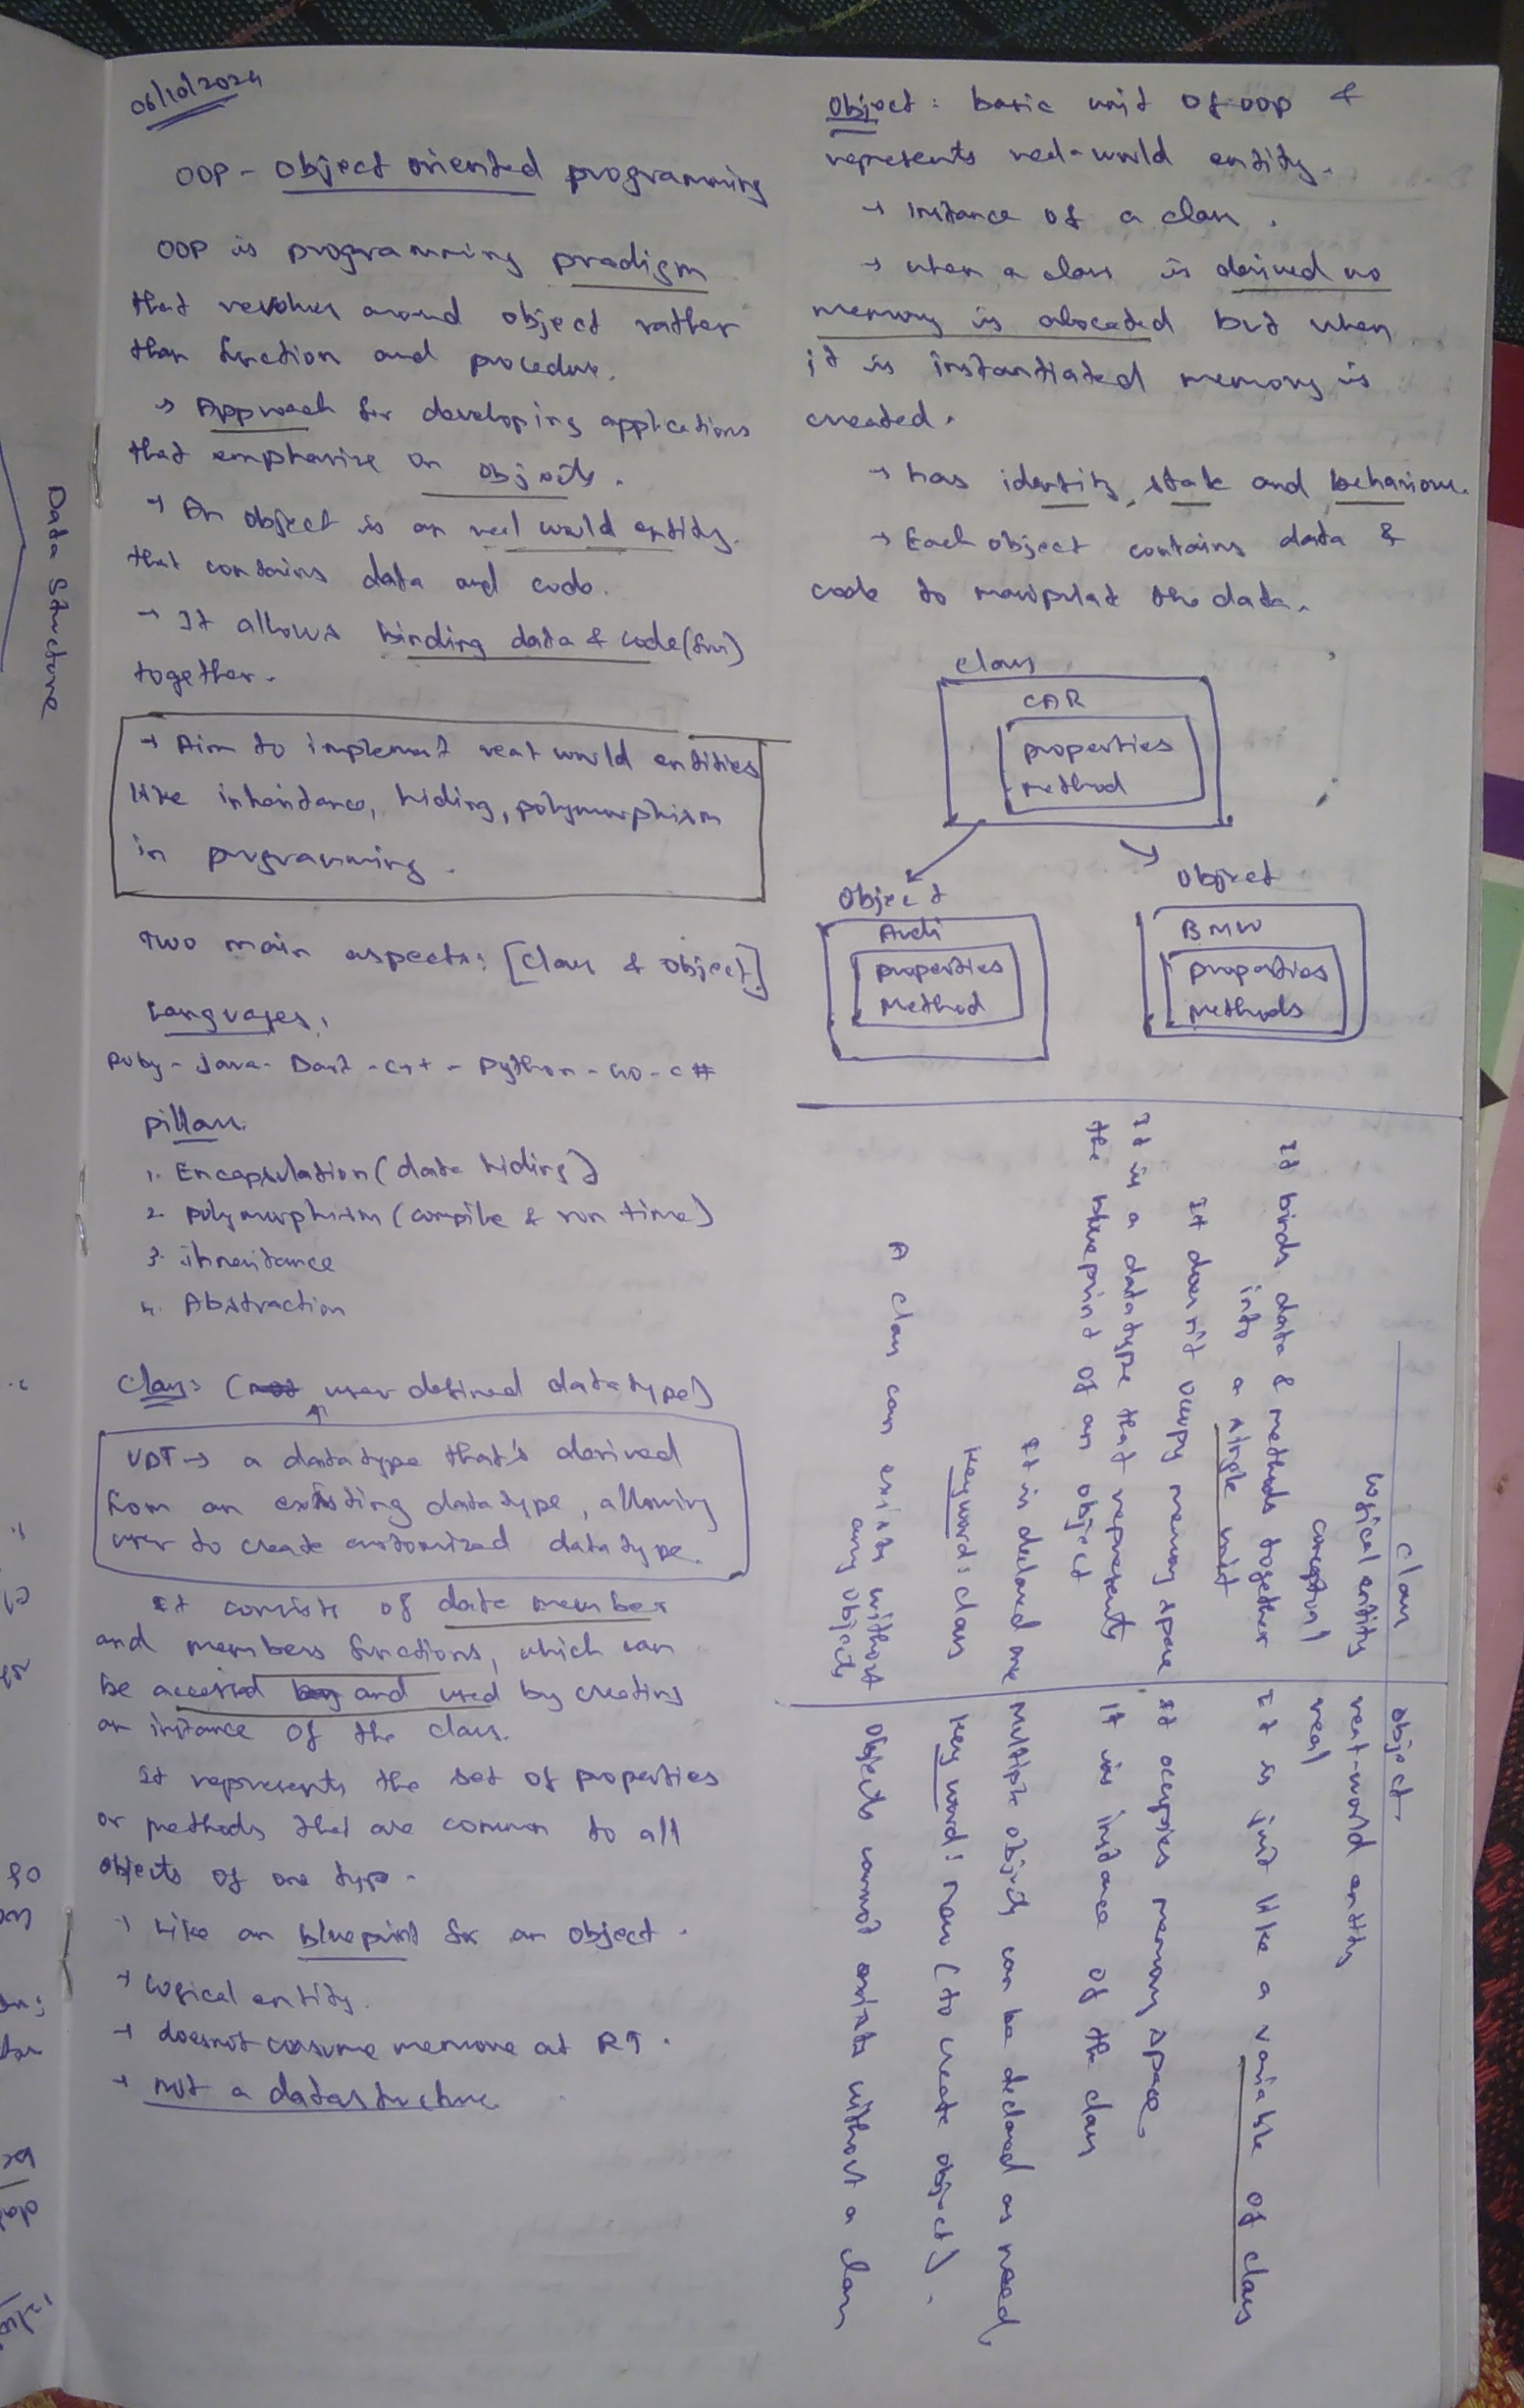 06/10/2024
OOP - object oriented programming
OOP is programming pradigm
that revolves around object rather
than function and procedure.
→ Approach for developing applications
that emphasize on objects.
→ An object is an real world entity.
that contains data and code.
→ It allows binding data & code(fun)
together.
→ Aim to implement real world entities
like inheritance, hiding, polymorphism
in programming.
Two main aspects: [class & object]
Languages:
Ruby - Java - Dart - C++ - Python - GO - C#
pillars.
1. Encapsulation (data hiding)
2. polymorphism (compile & run time)
3. inheritance
4. Abstraction
Class: (user defined datatype)
UDT → a datatype that's derived
from an existing datatype, allowing
user to create customized datatype.
It consists of data member
and members functions, which can
be accessed and used by creating
an instance of the class.
It represents the set of properties
or methods that are common to all
objects of one type.
→ Like an blueprint for an object.
→ Logical entity.
→ doesnot consume memore at RT.
→ not a datastructure
Object: basic unit of OOP &
represents real-world entity.
→ instance of a class.
→ when a class is no
memory is allocated but when
it is instantiated memory is
created.
→ has identity, state and behaviour.
→ Each object contains data &
code to manipulat the data.
class
CAR
properties
method
Object
Audi
properties
Method
Object
BMW
properties
Methods
Class
Logical entity
conceptual
It binds data & methods together
into a single unit
It doesn't occupy memory space
It is a datatype that represents
the blueprint of an object
It is declared one
Keyword: class
A class can exists without
any objects
Object
real-world entity
real
It is just like a variable of class
It occupies memory space.
It is instance of the class
Multiple objects can be declared as need
Keyword: new (to create object).
Objects cannot exists without a class
Data Structure